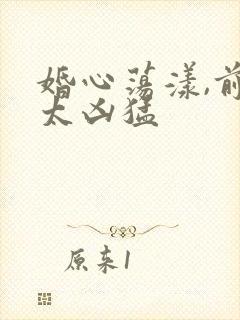 婚心荡漾,前
太凶猛
原来1